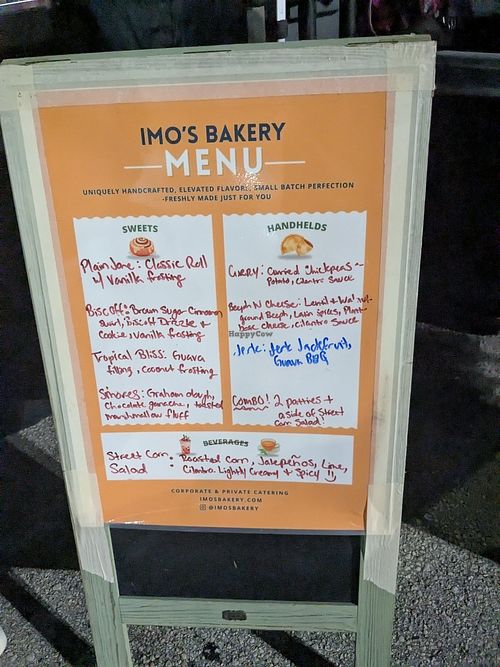 IMO'S BAKERY
MENU
UNIQUELY HANDCRAFTED, ELEVATED FLAVORS, SMALL BATCH PERFECTION
-FRESHLY MADE JUST FOR YOU
SWEETS
Plain Jane: Classic Roll
w/ Vanilla frosting
Biscoff: Brown Sugar Cinnamon
Swirl, Biscoff Drizzle +
Cookie, Vanilla frosting
Tropical Bliss: Guava
filling, coconut frosting
S'mores: Graham dough,
Chocolate ganache, toasted
marshmallow fluff
HANDHELDS
Curry: Curried Chickpeas +
Potato, Cilantro Sauce
Beyph N Cheese: Lentil + Walnut-
ground Beyph, Latin Spices, Plant-
base cheese, Cilantro Sauce
HappyCow
Jerk: Jerk Jackfruit,
Guava BBQ
COMBO! 2 patties +
a side of Street
Corn Salad!
BEVERAGES
Street Corn Salad: Roasted Corn, Jalepeños, Lime,
Cilantro. Lightly Creamy + Spicy :)
CORPORATE & PRIVATE CATERING
IMOSBAKERY.COM
@IMOSBAKERY